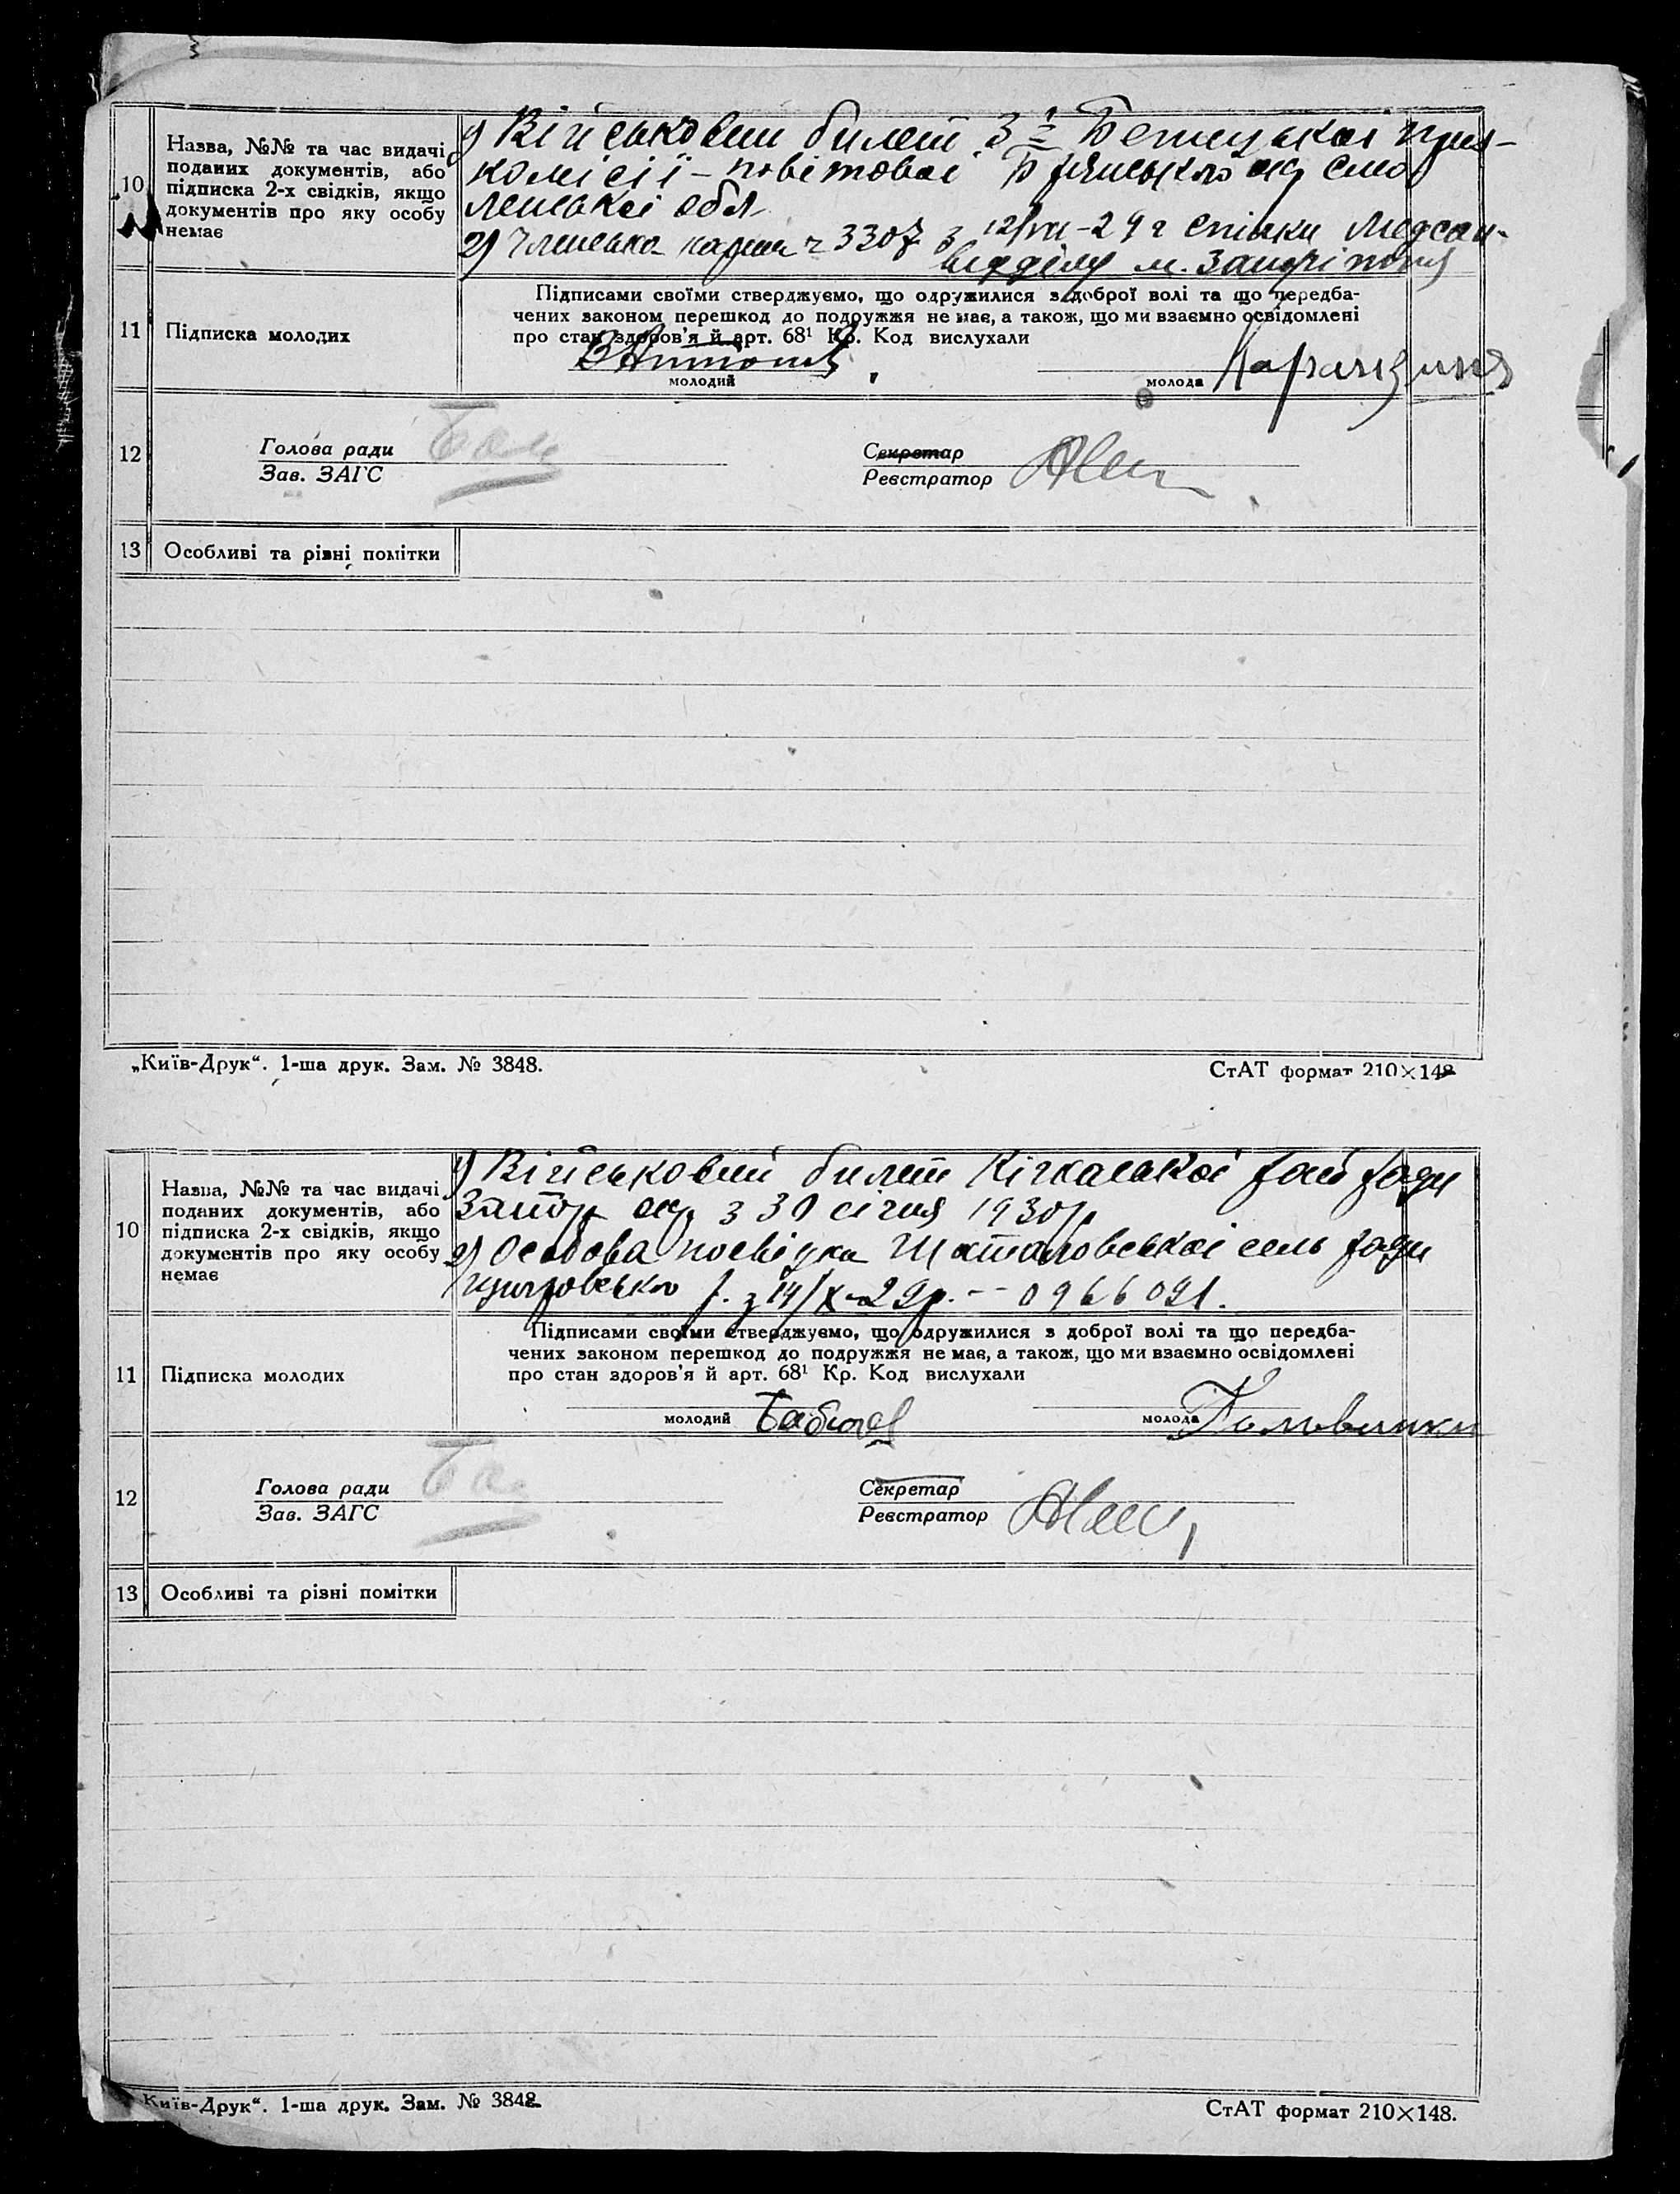 10
Назва, №№ та час видачі
поданих документів, або
підписка 2-х свідків, якщо
документів про яку особу
немає
1) Військовий билет з Бежицької
комісії – повітової Брянського окр Смо
ленської обл
2) Членська карта ч 3307 з 12/VII–29 г спілки Медсан-
відділу м. Запоріжжя
11
Підписка молодих
Підписами своїми стверджуємо, що одружилися з доброї волі та що передба-
чених законом перешкод до подружжя не має, а також, що ми взаємно освідомлені
про стан здоров'я й арт. 68¹ Кр. Код вислухали
молодий
молода
12
Голова ради
Зав. ЗАГС
Секретар
Реєстратор
13
Особливі та різні помітки
„Київ-Друк“. 1-ша друк. Зам. № 3848.
СтАТ формат 210×148
10
Назва, №№ та час видачі
поданих документів, або
підписка 2-х свідків, якщо
документів про яку особу
немає
1) Військовий билет Кічкаської рай ради
Запор окр з 30 січня 1930р
2) Особова посвідка Шаталовської сель ради
р. з 14/X–29р. – 0966091.
11
Підписка молодих
Підписами своїми стверджуємо, що одружилися з доброї волі та що передба-
чених законом перешкод до подружжя не має, а також, що ми взаємно освідомлені
про стан здоров'я й арт. 68¹ Кр. Код вислухали
молодий
молода
12
Голова ради
Зав. ЗАГС
Секретар
Реєстратор
13
Особливі та різні помітки
Київ-Друк“. 1-ша друк. Зам. № 3848.
СтАТ формат 210×148.